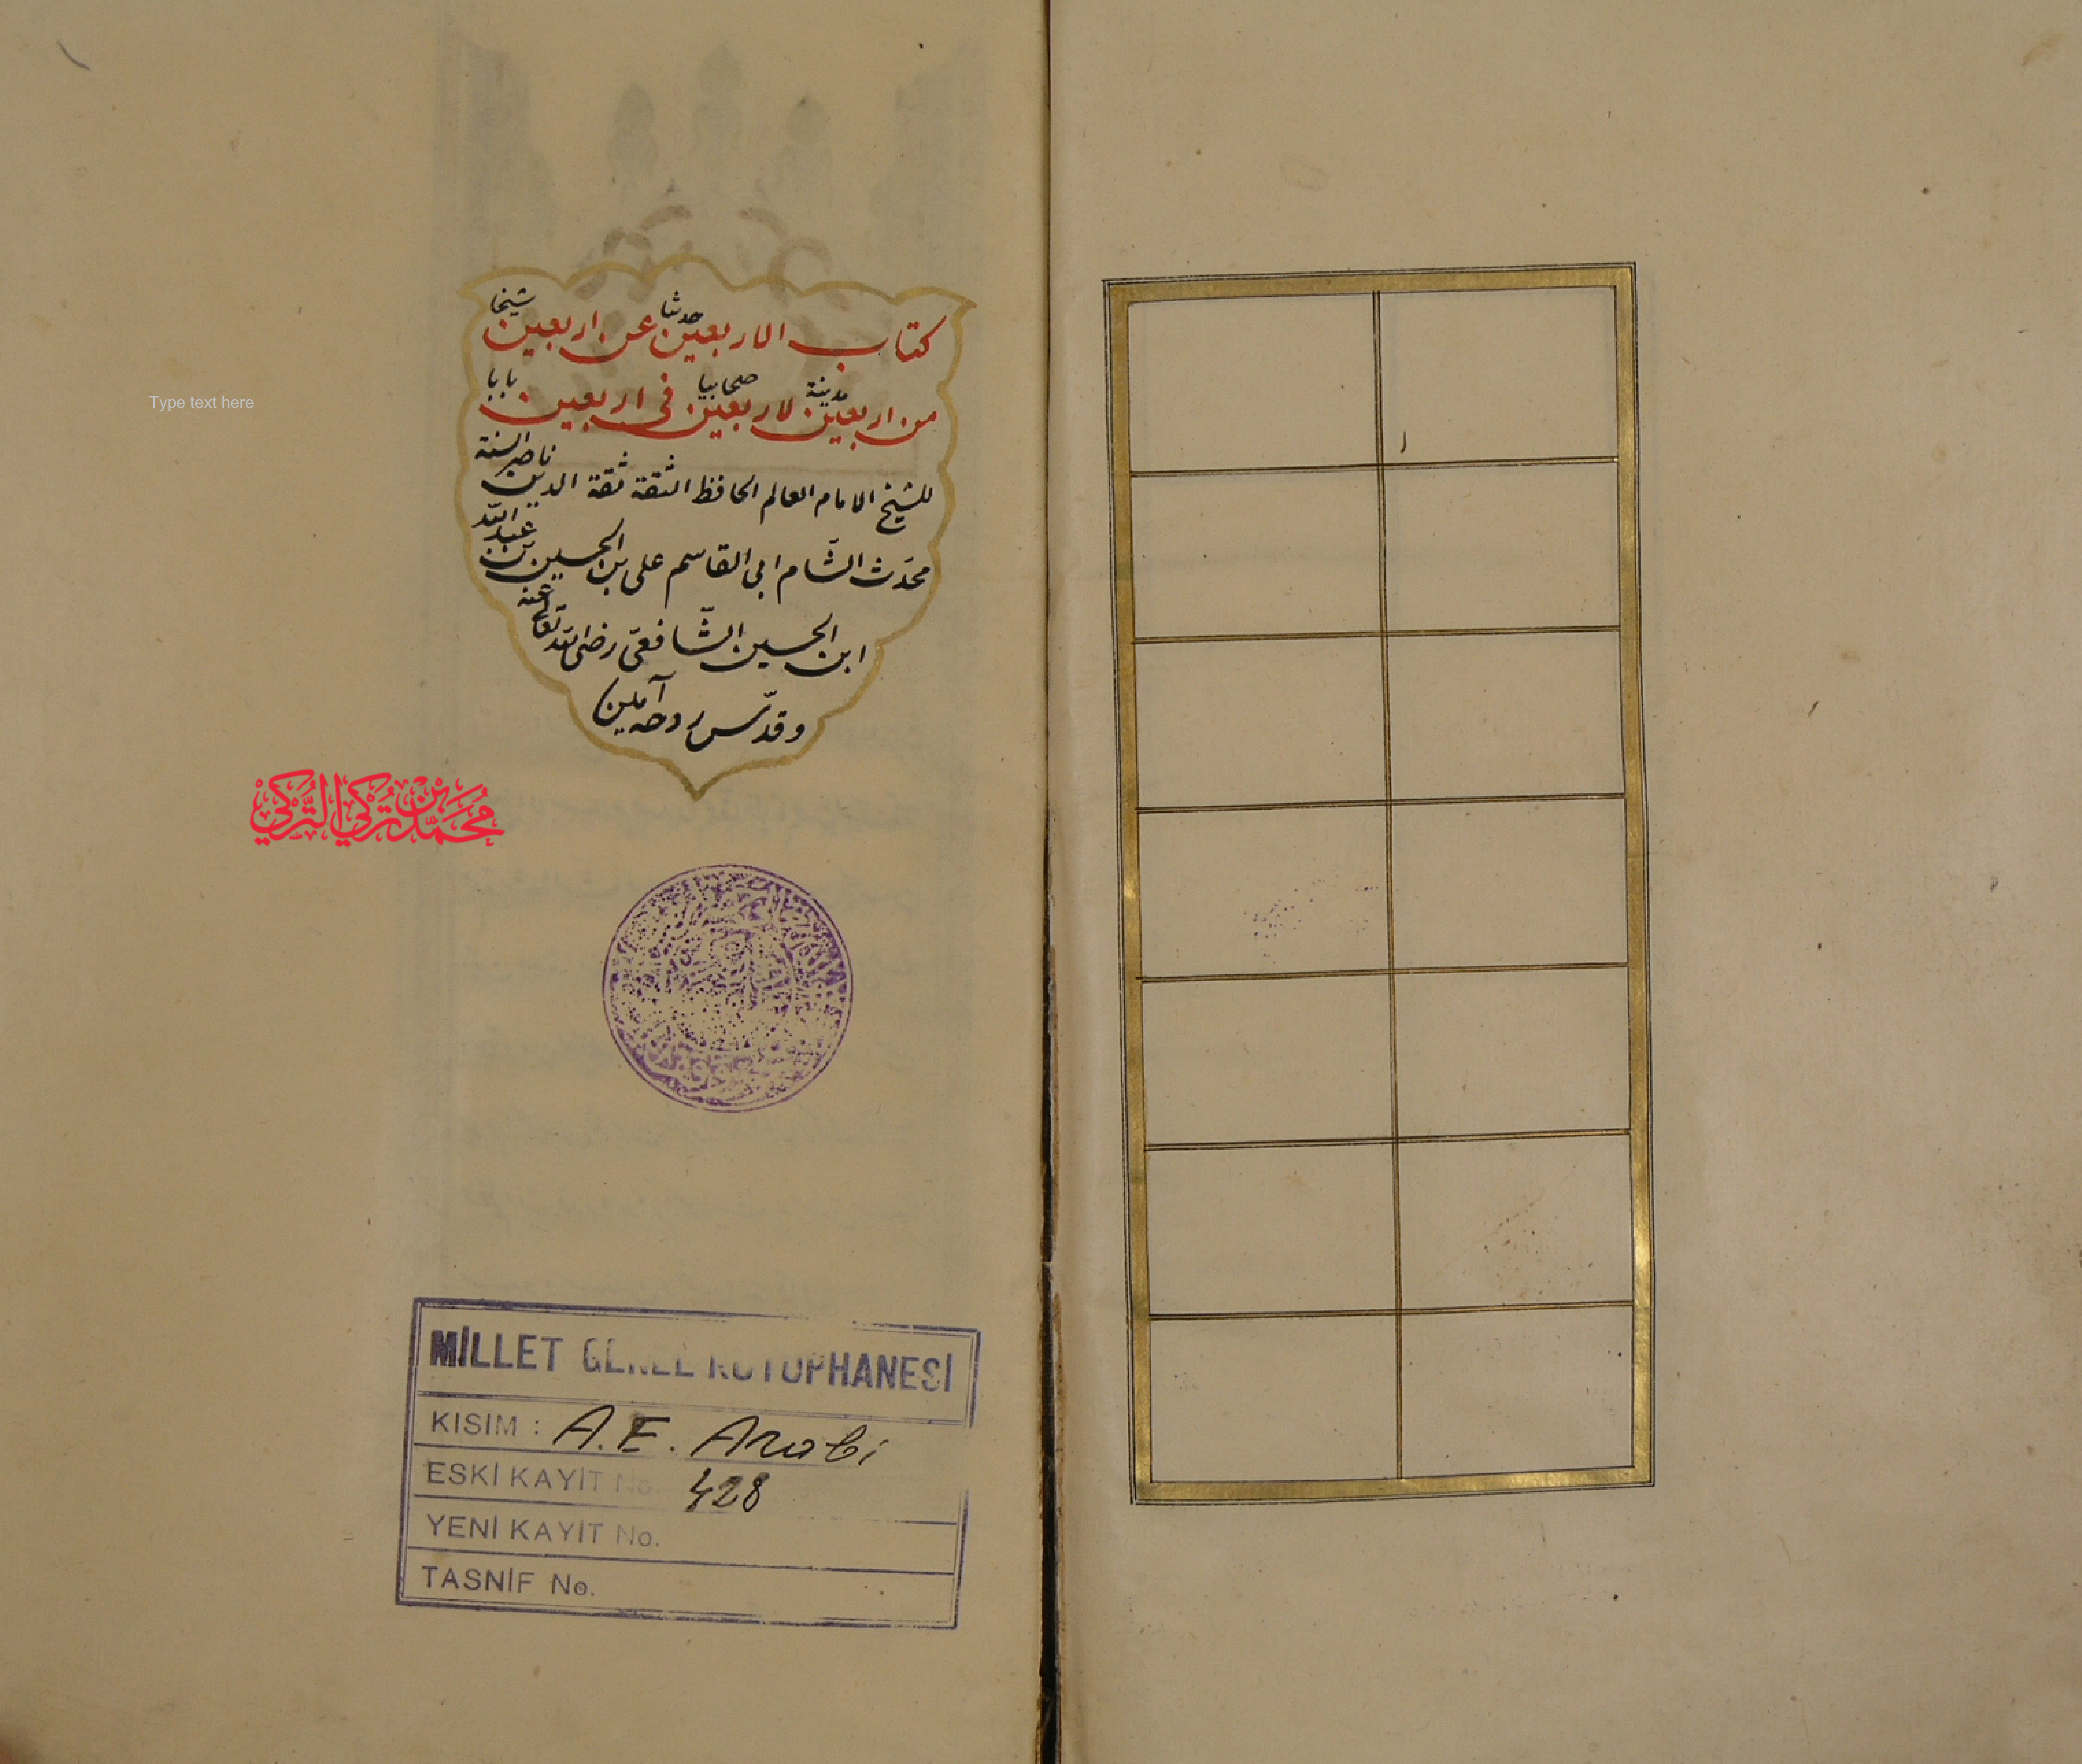 كتاب الاربعين حدثنا عن اربعين شيخا
من اربعين مدينة لاربعين صحابيا فى اربعين بابا
للشيخ الامام العالم الحافظ الثقة ثقة الدين ناصر السنة
محدّث الشّام ابى القاسم على بن الحسين بن عبد الله
ابن الحسين الشّافعىّ رضى الله تعالى عنه
وقدّس روحه آمين
Type text here
مُحَمَّدُ بْنُ تُرْكِي التُّرْكِيْ
MİLLET GENEL KÜTÜPHANESİ
KISIM : A.E. Arabi
ESKİ KAYİT No. 428
YENİ KAYİT No.
TASNİF No.
١